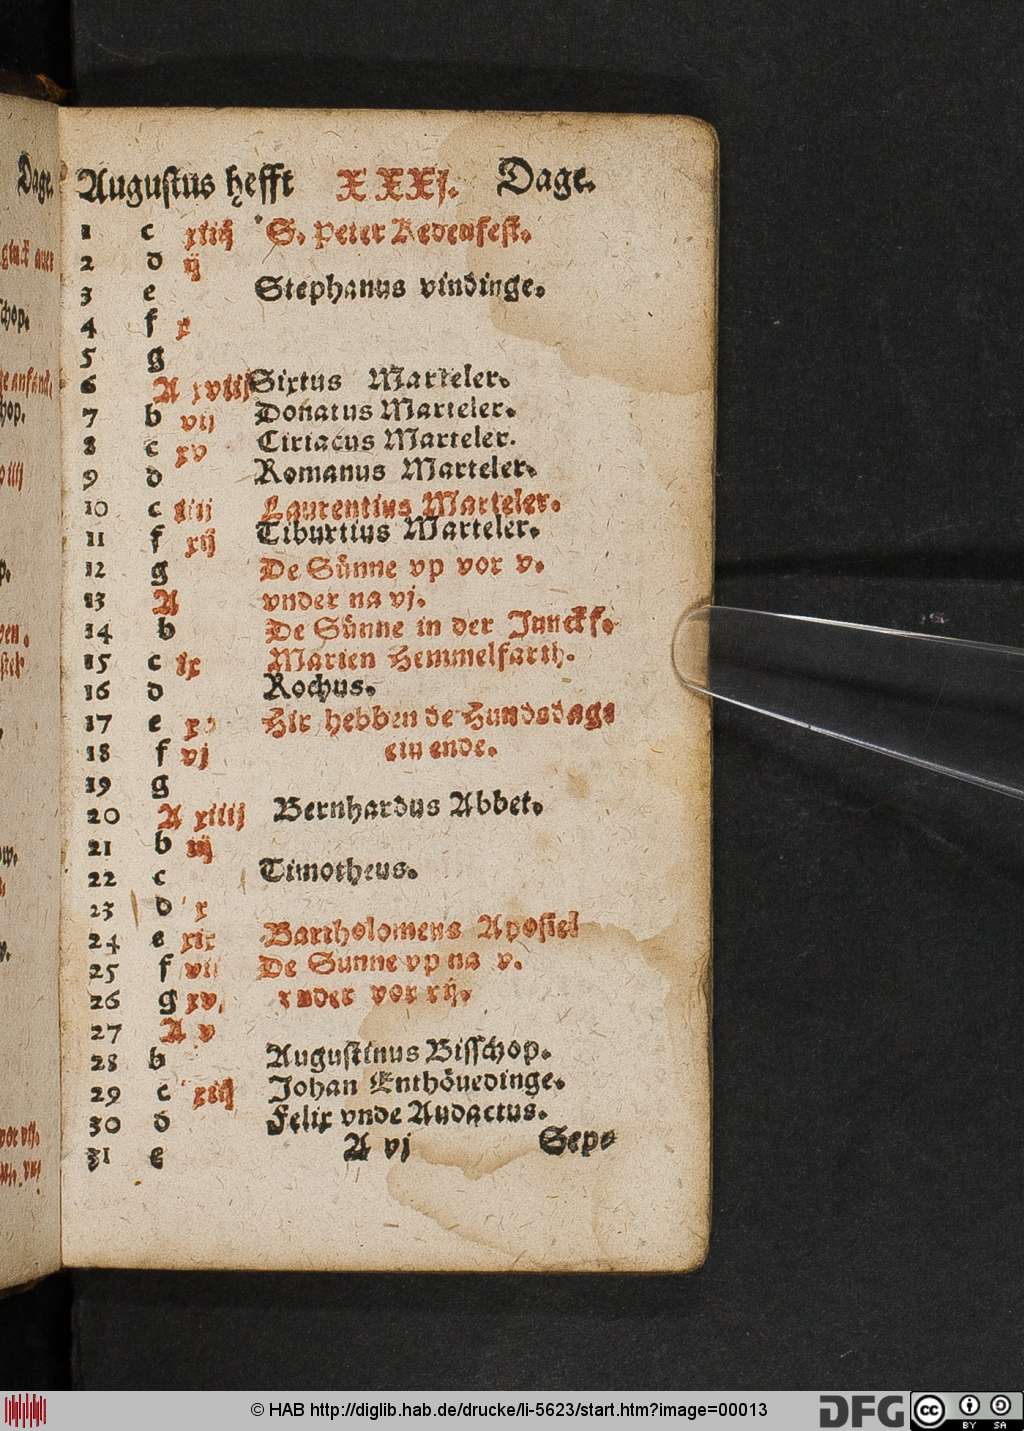 Augustus hefft XXXj. Dage.
1 c xiiij S. Peter Kedenfest.
2 d ij
3 e Stephanus vindinge.
4 f x
5 g
6 A xviij Sixtus Marteler.
7 b vij Donatus Marteler.
8 c xv Ciriacus Marteler.
9 d Romanus Marteler.
10 c iiij Laurentius Marteler.
11 f xij Tiburtius Marteler.
12 g De Sünne vp vor v.
13 A vnder na vj.
14 b De Sünne in der Junckf.
15 c ix Marien Hemmelfarth.
16 d Rochus.
17 e Hir hebben de Hundsdage
18 f vj ein ende.
19 g
20 A xiiij Bernhardus Abbet.
21 b iij
22 c Timotheus.
23 d x
24 e xix Bartholomeus Apostel
25 f De Sunne vp na v.
26 g xv vnder vor vij.
27 A v
28 b Augustinus Bisschop.
29 c xiij Johan Enthöuedinge.
30 d Felix vnde Audactus.
31 e
A vj Sep
© HAB http://diglib.hab.de/drucke/li-5623/start.htm?image=00013
DFG
cc BY SA